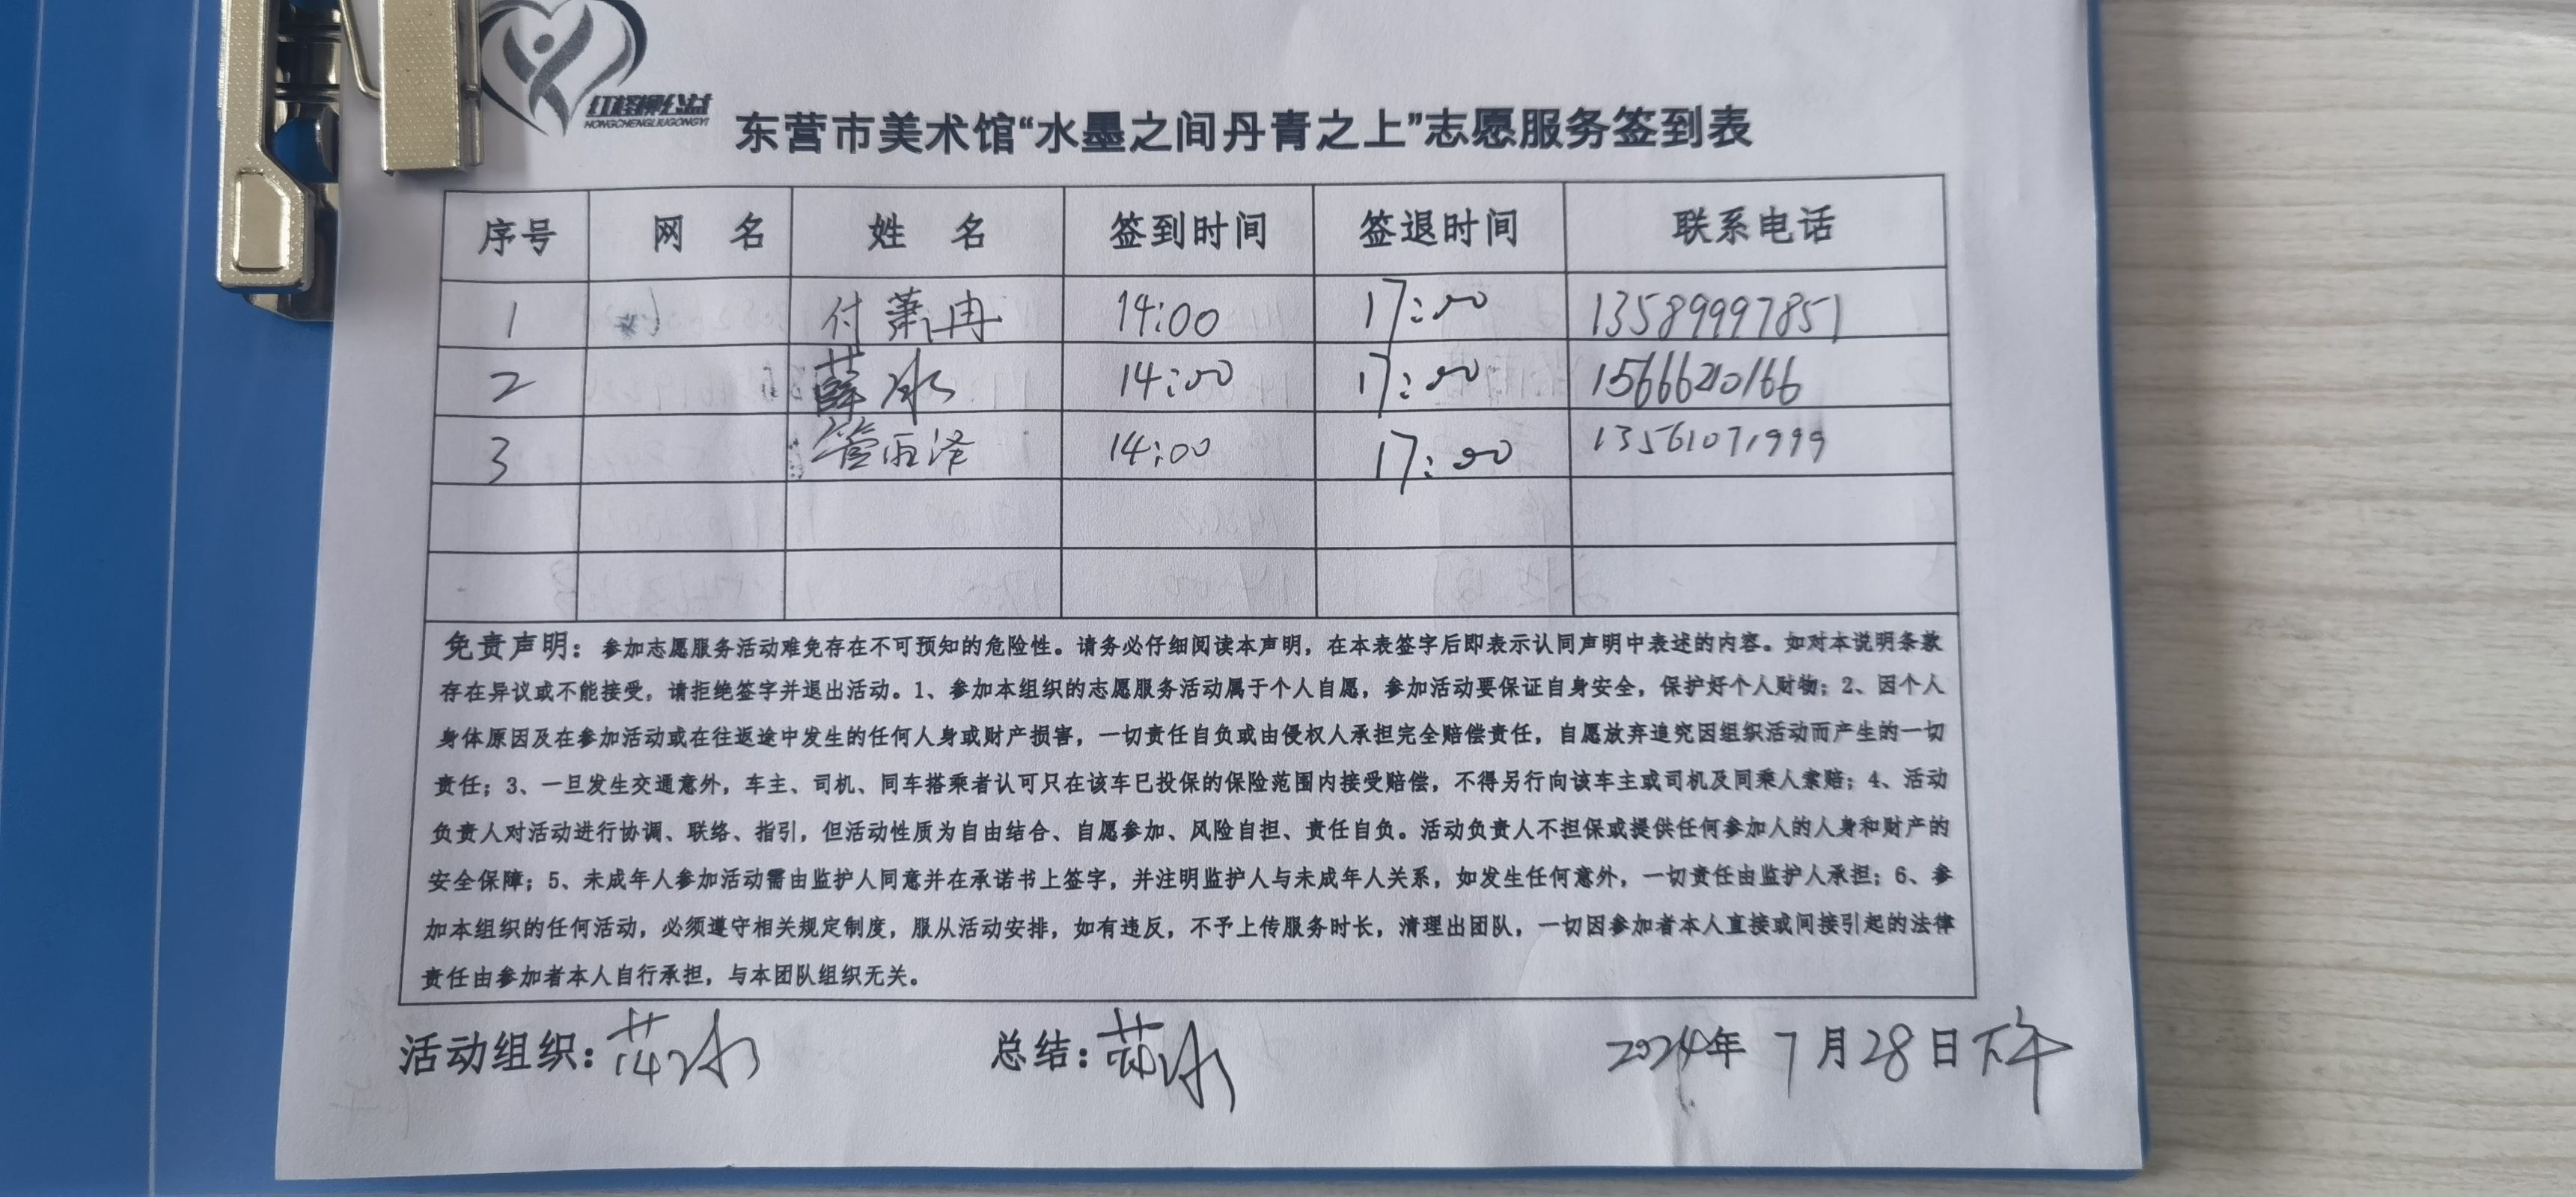 红柽柳公益
HONGCHENGLIUGONGYI
东营市美术馆“水墨之间丹青之上”志愿服务签到表
序号 网 名 姓 名 签到时间 签退时间 联系电话
1 付萧冉 14:00 17:00 13589997851
2 薛冰 14:00 17:00 15666210166
3 管雨泽 14:00 17:00 13561071999
免责声明：参加志愿服务活动难免存在不可预知的危险性。请务必仔细阅读本声明，在本表签字后即表示认同声明中表述的内容。如对本说明条款
存在异议或不能接受，请拒绝签字并退出活动。1、参加本组织的志愿服务活动属于个人自愿，参加活动要保证自身安全，保护好个人财物；2、因个人
身体原因及在参加活动或在往返途中发生的任何人身或财产损害，一切责任自负或由侵权人承担完全赔偿责任，自愿放弃追究因组织活动而产生的一切
责任；3、一旦发生交通意外，车主、司机、同车搭乘者认可只在该车已投保的保险范围内接受赔偿，不得另行向该车主或司机及同乘人索赔；4、活动
负责人对活动进行协调、联络、指引，但活动性质为自由结合、自愿参加、风险自担、责任自负。活动负责人不担保或提供任何参加人的人身和财产的
安全保障；5、未成年人参加活动需由监护人同意并在承诺书上签字，并注明监护人与未成年人关系，如发生任何意外，一切责任由监护人承担；6、参
加本组织的任何活动，必须遵守相关规定制度，服从活动安排，如有违反，不予上传服务时长，清理出团队，一切因参加者本人直接或间接引起的法律
责任由参加者本人自行承担，与本团队组织无关。
活动组织： 总结： 2024年 7月28日下午